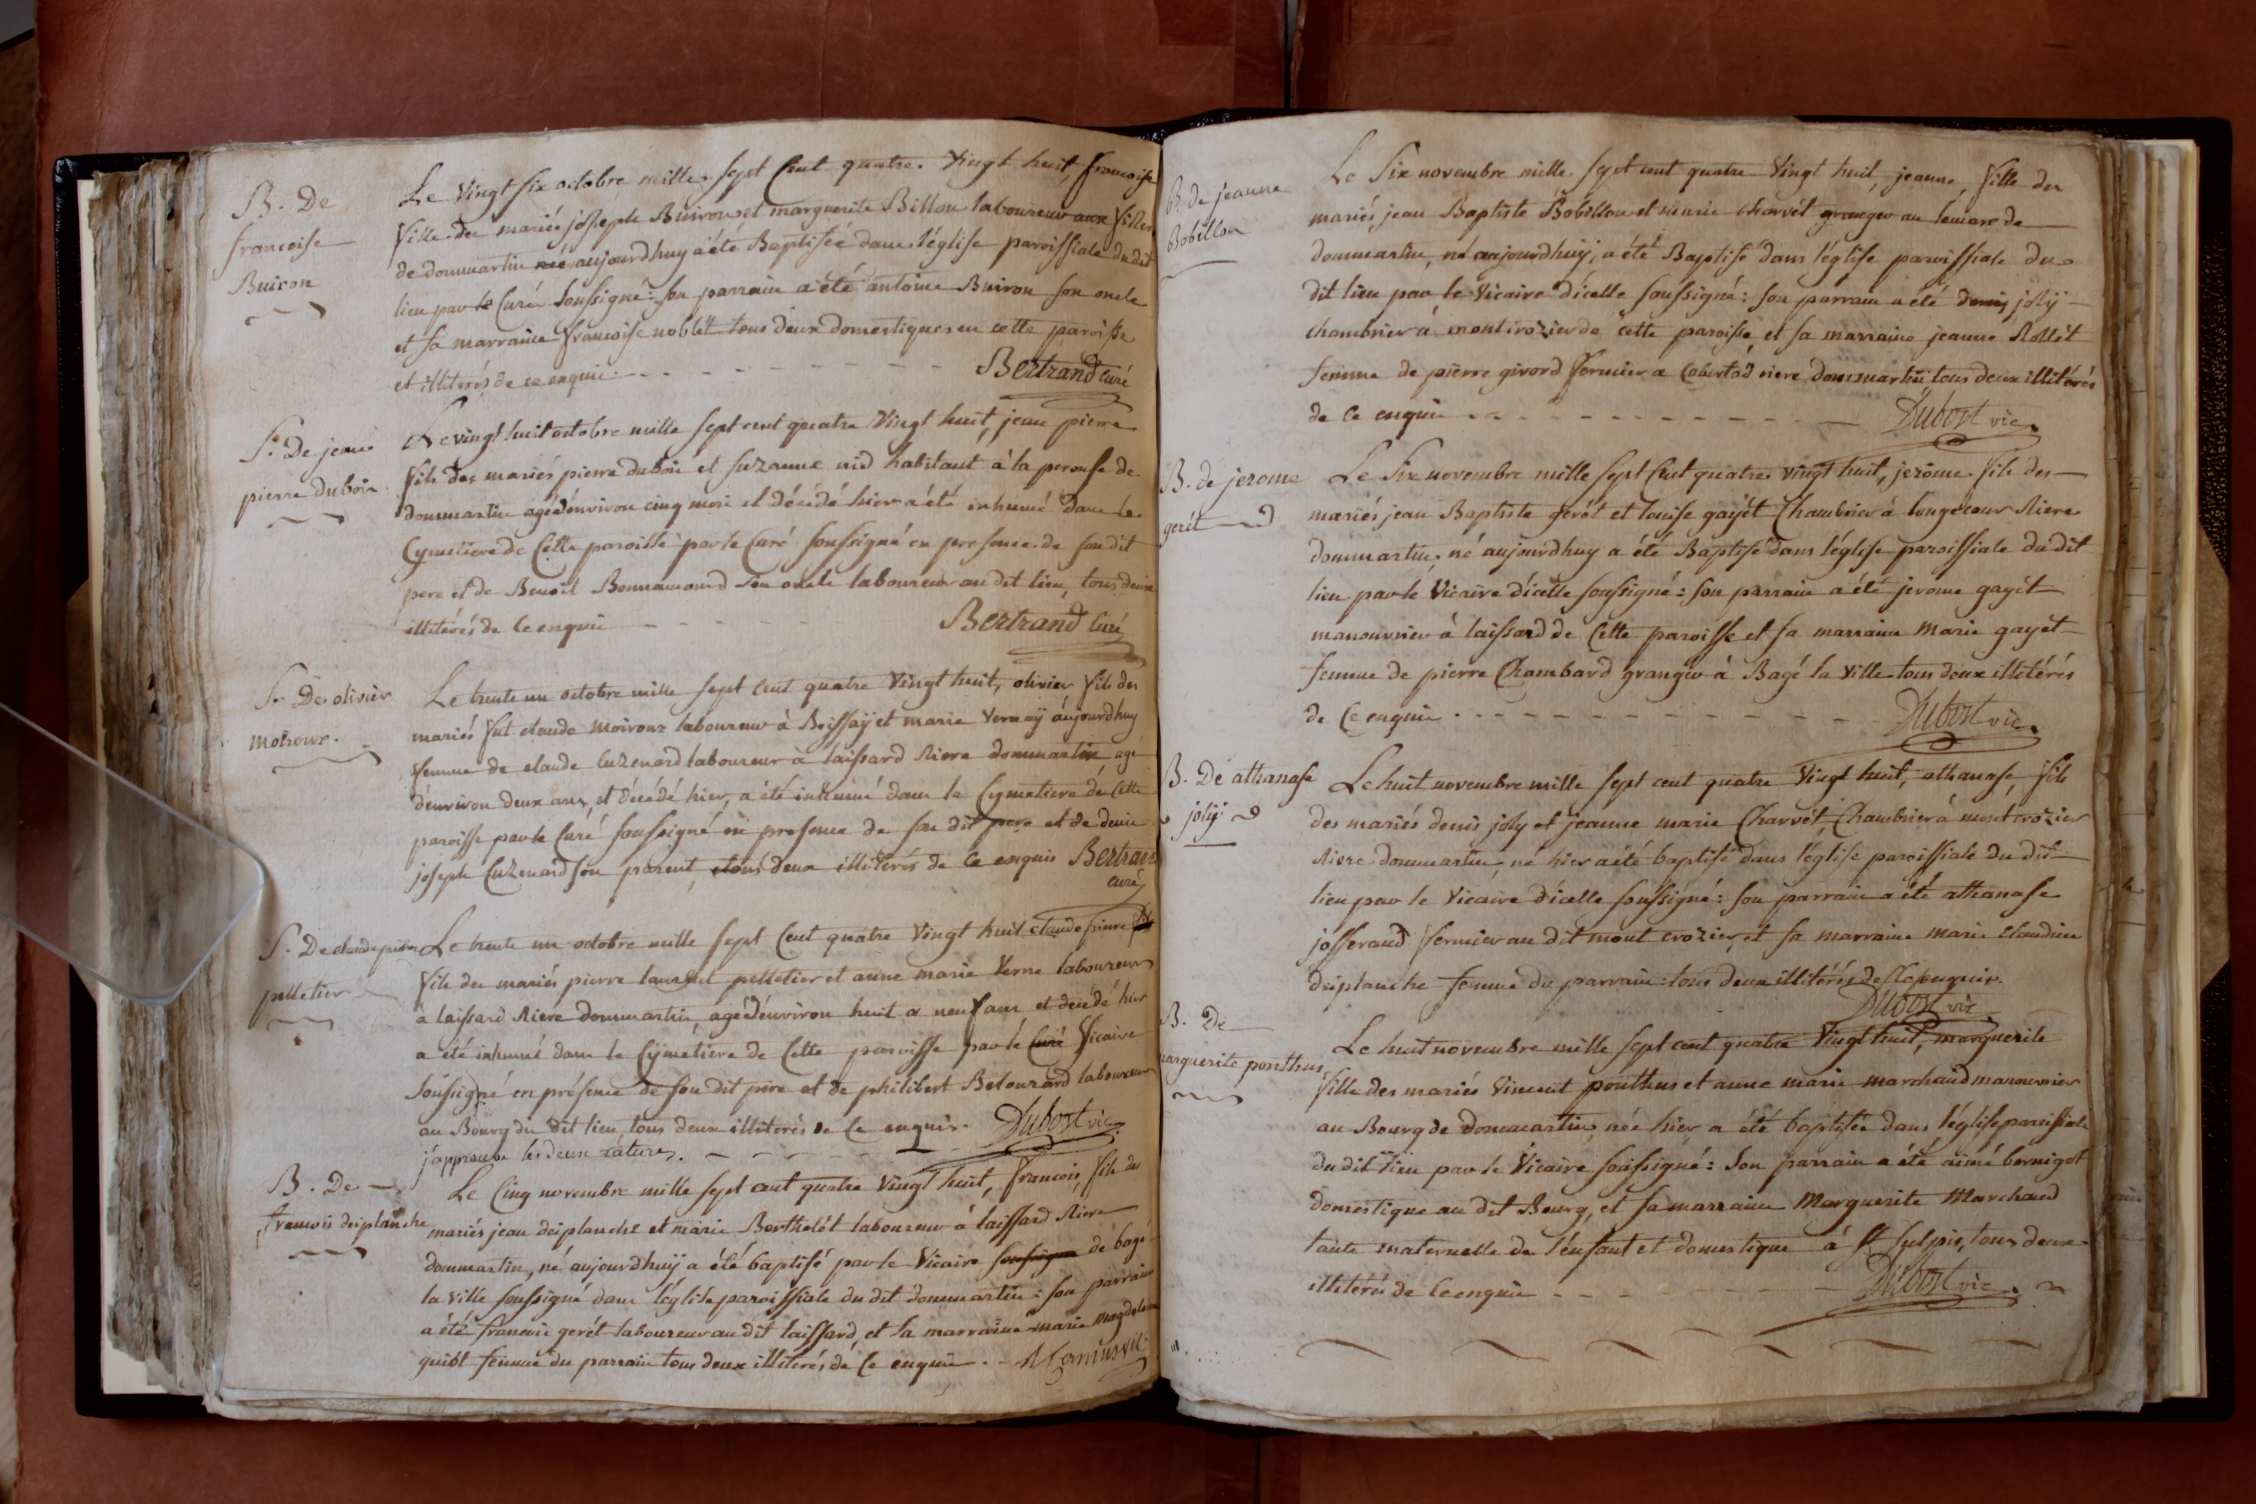 B. De
francoise
Buiron
Le vingt six octobre mille sept Cent quatre. vingt huit, francoise
fille des mariés joseph Buiron et marguerite Billon laboureur aux
de dommartin née aujourdhuy a été Baptisée dans l'église paroissiale du dit
lieu par le Curé soussigné: son parrain a été antoine Buiron son oncle
et sa marraine francoise noblet tous deux domestiques en cette paroisse
et illiterés de ce enquis
Bertrand Curé
S. De jean
pierre dubois
Le vingt huit octobre mille sept cent quatre vingt huit, jean pierre
fils des mariés pierre dubois et suzanne nid habitant à la perouse de
dommartin agé d'environ cinq mois et décédé hier a été inhumé dans le
Cymetiere de Cette paroisse par le Curé soussigné en presence de son dit
pere et de Benoit Bonnamourd son oncle laboureur au dit lieu, tous deux
illiterés de Ce enquis
Bertrand Curé
S. De olivier
moiroux.
Le trente un octobre mille sept Cent quatre vingt huit, olivier fils des
mariés fut claude moiroux laboureur à Boissaÿ et marie vernaÿ aujourdhuy
femme de claude Cuzenard laboureur à laissard Riere dommartin agé
d'environ deux ans, et décédé hier, a été inhumé dans le Cymetiere de Cette
paroisse par le Curé soussigné en presence de son dit pere et de denis
joseph Cuzenard son parent, tous deux illiterés de Ce enquis Bertrand
curé
S. De claude pierre
pelletier
Le trente un octobre mille sept Cent quatre vingt huit claude pierre
fils des mariés pierre laurent pelletier et anne marie Verne laboureur
à laissard Riere dommartin, agé d'environ huit a neuf ans et decédé hier
a été inhumé dans le Cÿmetiere de Cette paroisse par le Curé Vicaire
soussigné en présence de son dit père et de philibert Belouzard laboureur
au Bourg du dit lieu tous deux illiterés de Ce enquis.
Dubost vic.
j'approuve les deux ratures.
B. De
francois desplanche
Le Cinq novembre mille sept cent quatre vingt huit, francois, fils des
mariés jean desplanche et marie Berthelét laboureur à laissard Riere
dommartin, né aujourdhuÿ a été baptisé par le Vicaire soussigné de bagé
la ville soussigné dans l'église paroissiale du dit dommartin: son parrain
a été francois gerét laboureur au dit laissard, et sa marraine marie magdelaine
femme du parrain tous deux illiterés de Ce enquis.
B. de jeanne
Bobillon
Le Six novembre mille sept cent quatre vingt huit, jeanne, fille des
mariés jean Baptiste Bobillon et marie charvét granger au de
dommartin, né aujourdhuÿ, a été Baptisé dans l'église paroissiale du
dit lieu par le Vicaire d'icelle soussigné: son parrain a été denis jolÿ
chambrier à montcrozier de cette paroisse, et sa marraine jeanne Rollét
femme de pierre givord fermier a riere dommartin tous deux illitérés
de Ce enquis
Dubost vic.
B. de jerome
gerét
Le Six novembre mille sept Cent quatre vingt huit, jerôme fils des
mariés jean Baptiste gerét et louise gaÿét Chambrier à longecour Riere
dommartin, né aujourdhuy a été Baptisé dans l'église paroissiale du dit
lieu par le Vicaire d'icelle soussigné: son parrain a été jerome gayét
manouvrier à laissard de Cette paroisse et sa marraine marie gayét
femme de pierre Chambard granger à Bagé la ville tous deux illitérés
de Ce enquis.
Dubost vic.
B. De athanase
jolÿ
Le huit novembre mille sept cent quatre vingt huit, athanase, fils
des mariés denis joly et jeanne marie Charvét, Chambrier à montcrozier
Riere dommartin, né hier a été baptisé dans l'église paroissiale du dit
lieu par le Vicaire d'icelle soussigné: son parrain a été athanase
josserand fermier au dit mont crozier, et sa marraine marie Claudine
desplanche femme du parrain: tous deux illitérés de Ce enquis.
Dubost vic
B. De
marguerite ponthus
Le huit novembre mille sept cent quatre vingt huit, marguerite
fille des mariés Vincent ponthus et anne marie marchand manouvrier
au Bourg de dommartin, née hier a été baptisée dans l'église paroissiale
du dit lieu par le Vicaire soussigné: son parrain a été aimé bernigot
domestique au dit Bourg, et sa marraine Marguerite Marchand
tante maternelle de l'enfant et domestique à St Sulpis, tous deux
illitérés de Ce enquis
Dubost vic.